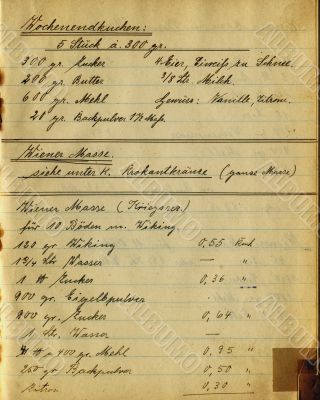 Wochenendkuchen:
5 Stück á. 300 gr.
300 gr. Zucker 4 Eier, Eiweiß zu Schnee
200 gr. Butter 3/8 Ltr. Milch.
600 gr. Mehl Gewürz: Vanille, Zitron.
20 gr. Backpulver
Wiener Masse.
siehe unter K. Krokantkränze (ganze Masse)
Wiener Masse (Kriegsrez.)
für 10 Böden m. Wiking.
120 gr. Wiking 0,55
1 3/4 Ltr Wasser — "
1 ℔ Zucker 0,36 "
900 gr. Eigelbpulver
900 gr. Zucker 0,64 "
1 Ltr. Wasser — "
℔ a 400 gr. Mehl 0,95 "
250 gr Backpulver 0,50 "
Zitron 0,30 "